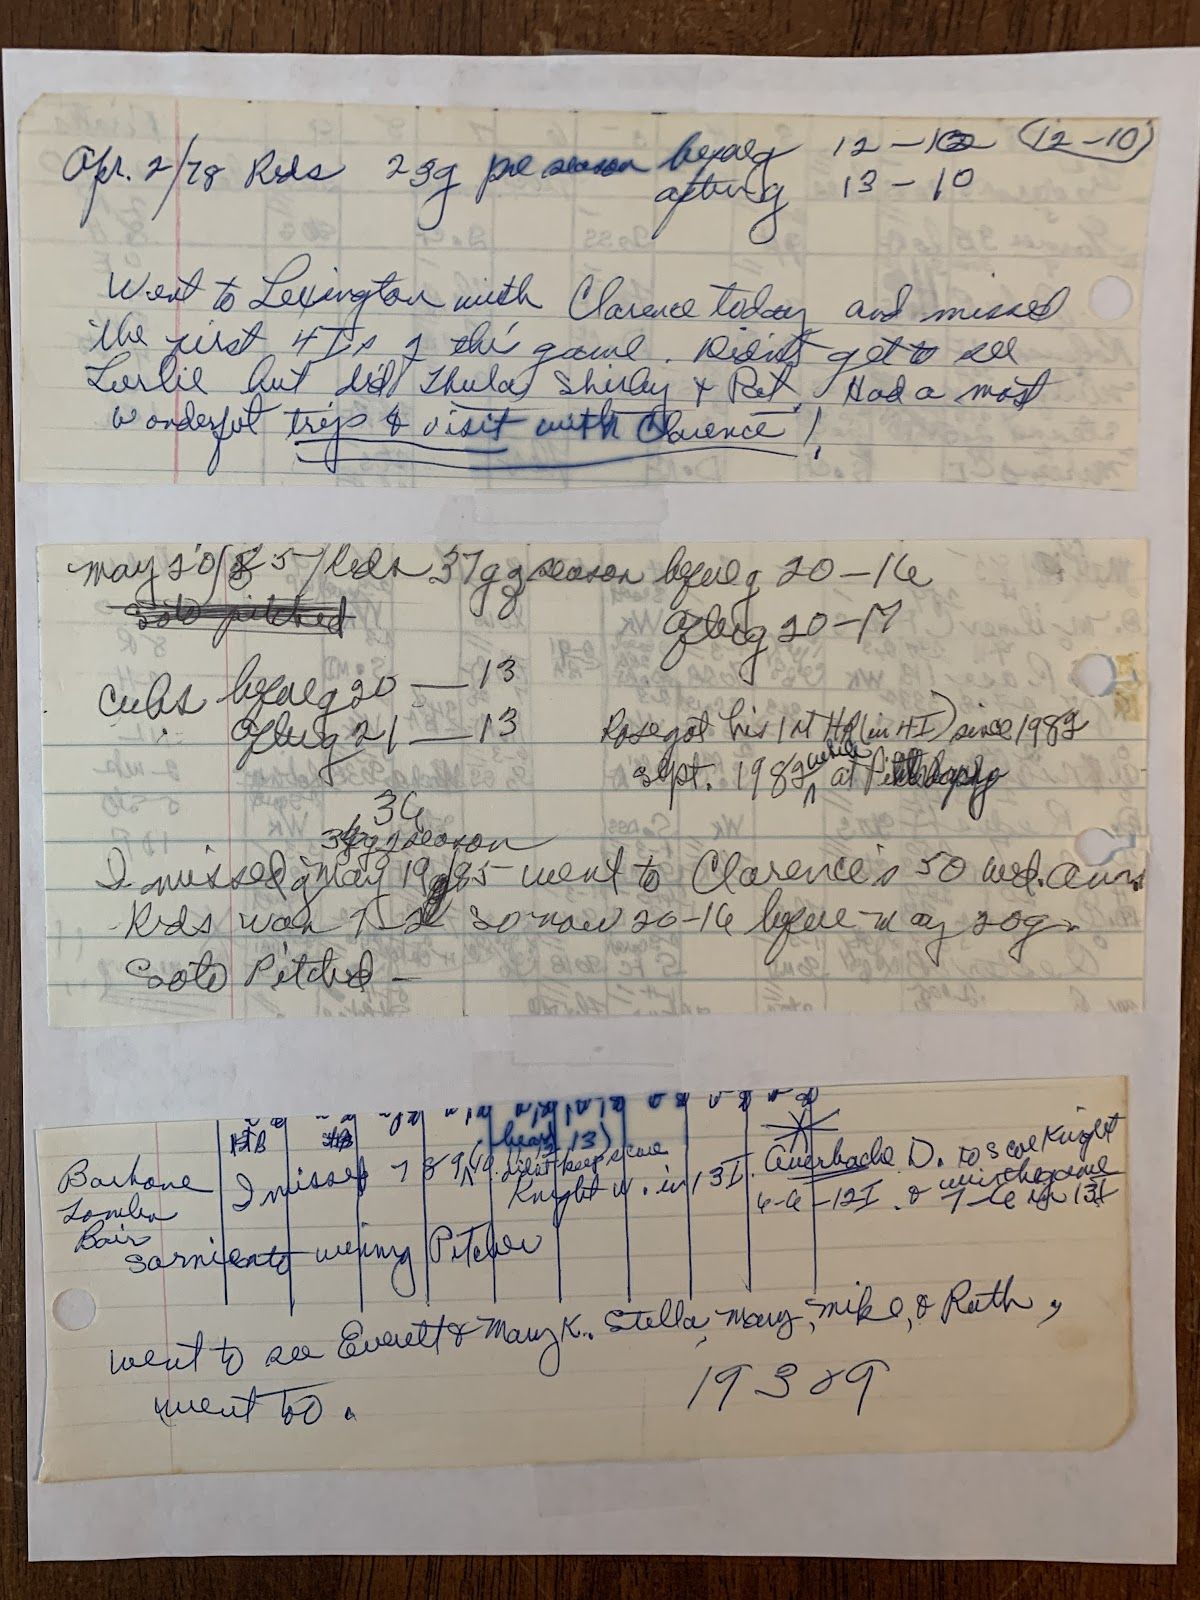 Apr. 2/78 Reds 23g pre season before g 12-10 (12-10)
after g 13-10
Went to Lexington with Clarence today and missed
the first 4 Is of the game. Didn't get to see
Leslie but did Thula, Shirley & Pat. Had a most
wonderful trip & visit with Clarence!
May 20/85 Reds 37g g season before g 20-16
Soto pitched
after g 20-17
Cubs before g 20-13
" after g 21-13
Rose got his 1st HR (in 4 I) since 1982
Sept. 1982 while at
36
g season
I missed g May 19/85 went to Clarence's 50 wed. ann.
Reds won so now 20-16 before May 20g.
Soto Pitched -
(hear 13)
Barbone I missed 7 8 9 10 didn't keep score
Knight w. in 13 I. Auerbach D. to score Knight
win the game
6-6-12 I. & 7-6 in 13 I
Bair
Sarmiento winning Pitcher
went to see Everett & Mary K., Stella, Mary, Mike, & Ruth,
went too.